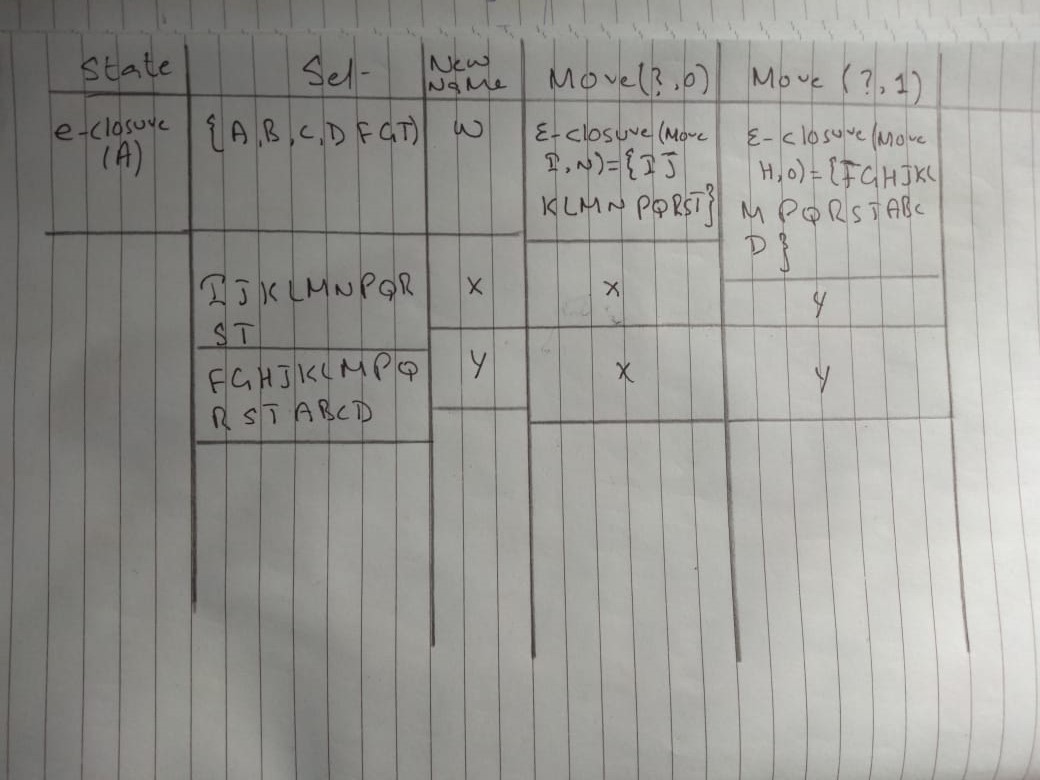 State Set New Name Move(?,0) Move (?,1)
e-closure (A) {A,B,C,D F G T} W ε-closure(Move I,N)={I J KLMN PQRST} ε-closure(Move H,O)={FGHJKL M PQRSTABC D }
IJKLMNPQR ST X X Y
FGHJKLMPQ RSTABCD Y X Y